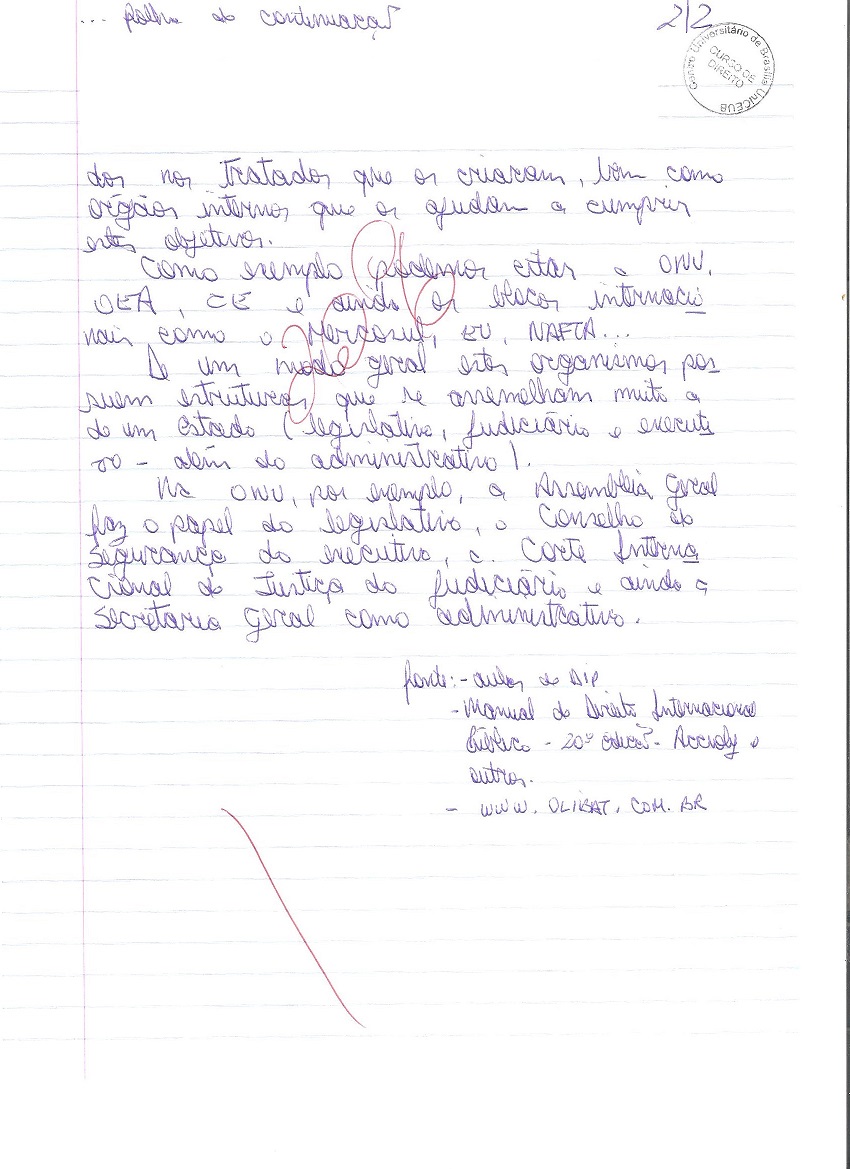 ... folha de continuação
2/2
Centro Universitário de Brasília UniCEUB
CURSO DE
DIREITO
dos nos Tratados que os criaram, bem como
órgãos internos que os ajudam a cumprir
estes objetivos.
Como exemplo podemos citar a ONU,
OEA, CE e ainda os blocos internacio
nais como o Mercosul, EU, NAFTA...
De um modo geral estes organismos pos
suem estruturas que se assemelham muito a
de um Estado (legislativo, judiciário e executi
vo - além do administrativo).
Na ONU, por exemplo, a Assembléia Geral
faz o papel do legislativo, o Conselho de
Segurança do executivo, a Corte Interna
cional de Justiça do judiciário e ainda a
Secretaria Geral como administrativo.
fonte: - aulas de DIP
- Manual de Direito Internacional
Público - 20ª edição - Accioly e
outros.
- WWW.OLIBAT.COM.BR